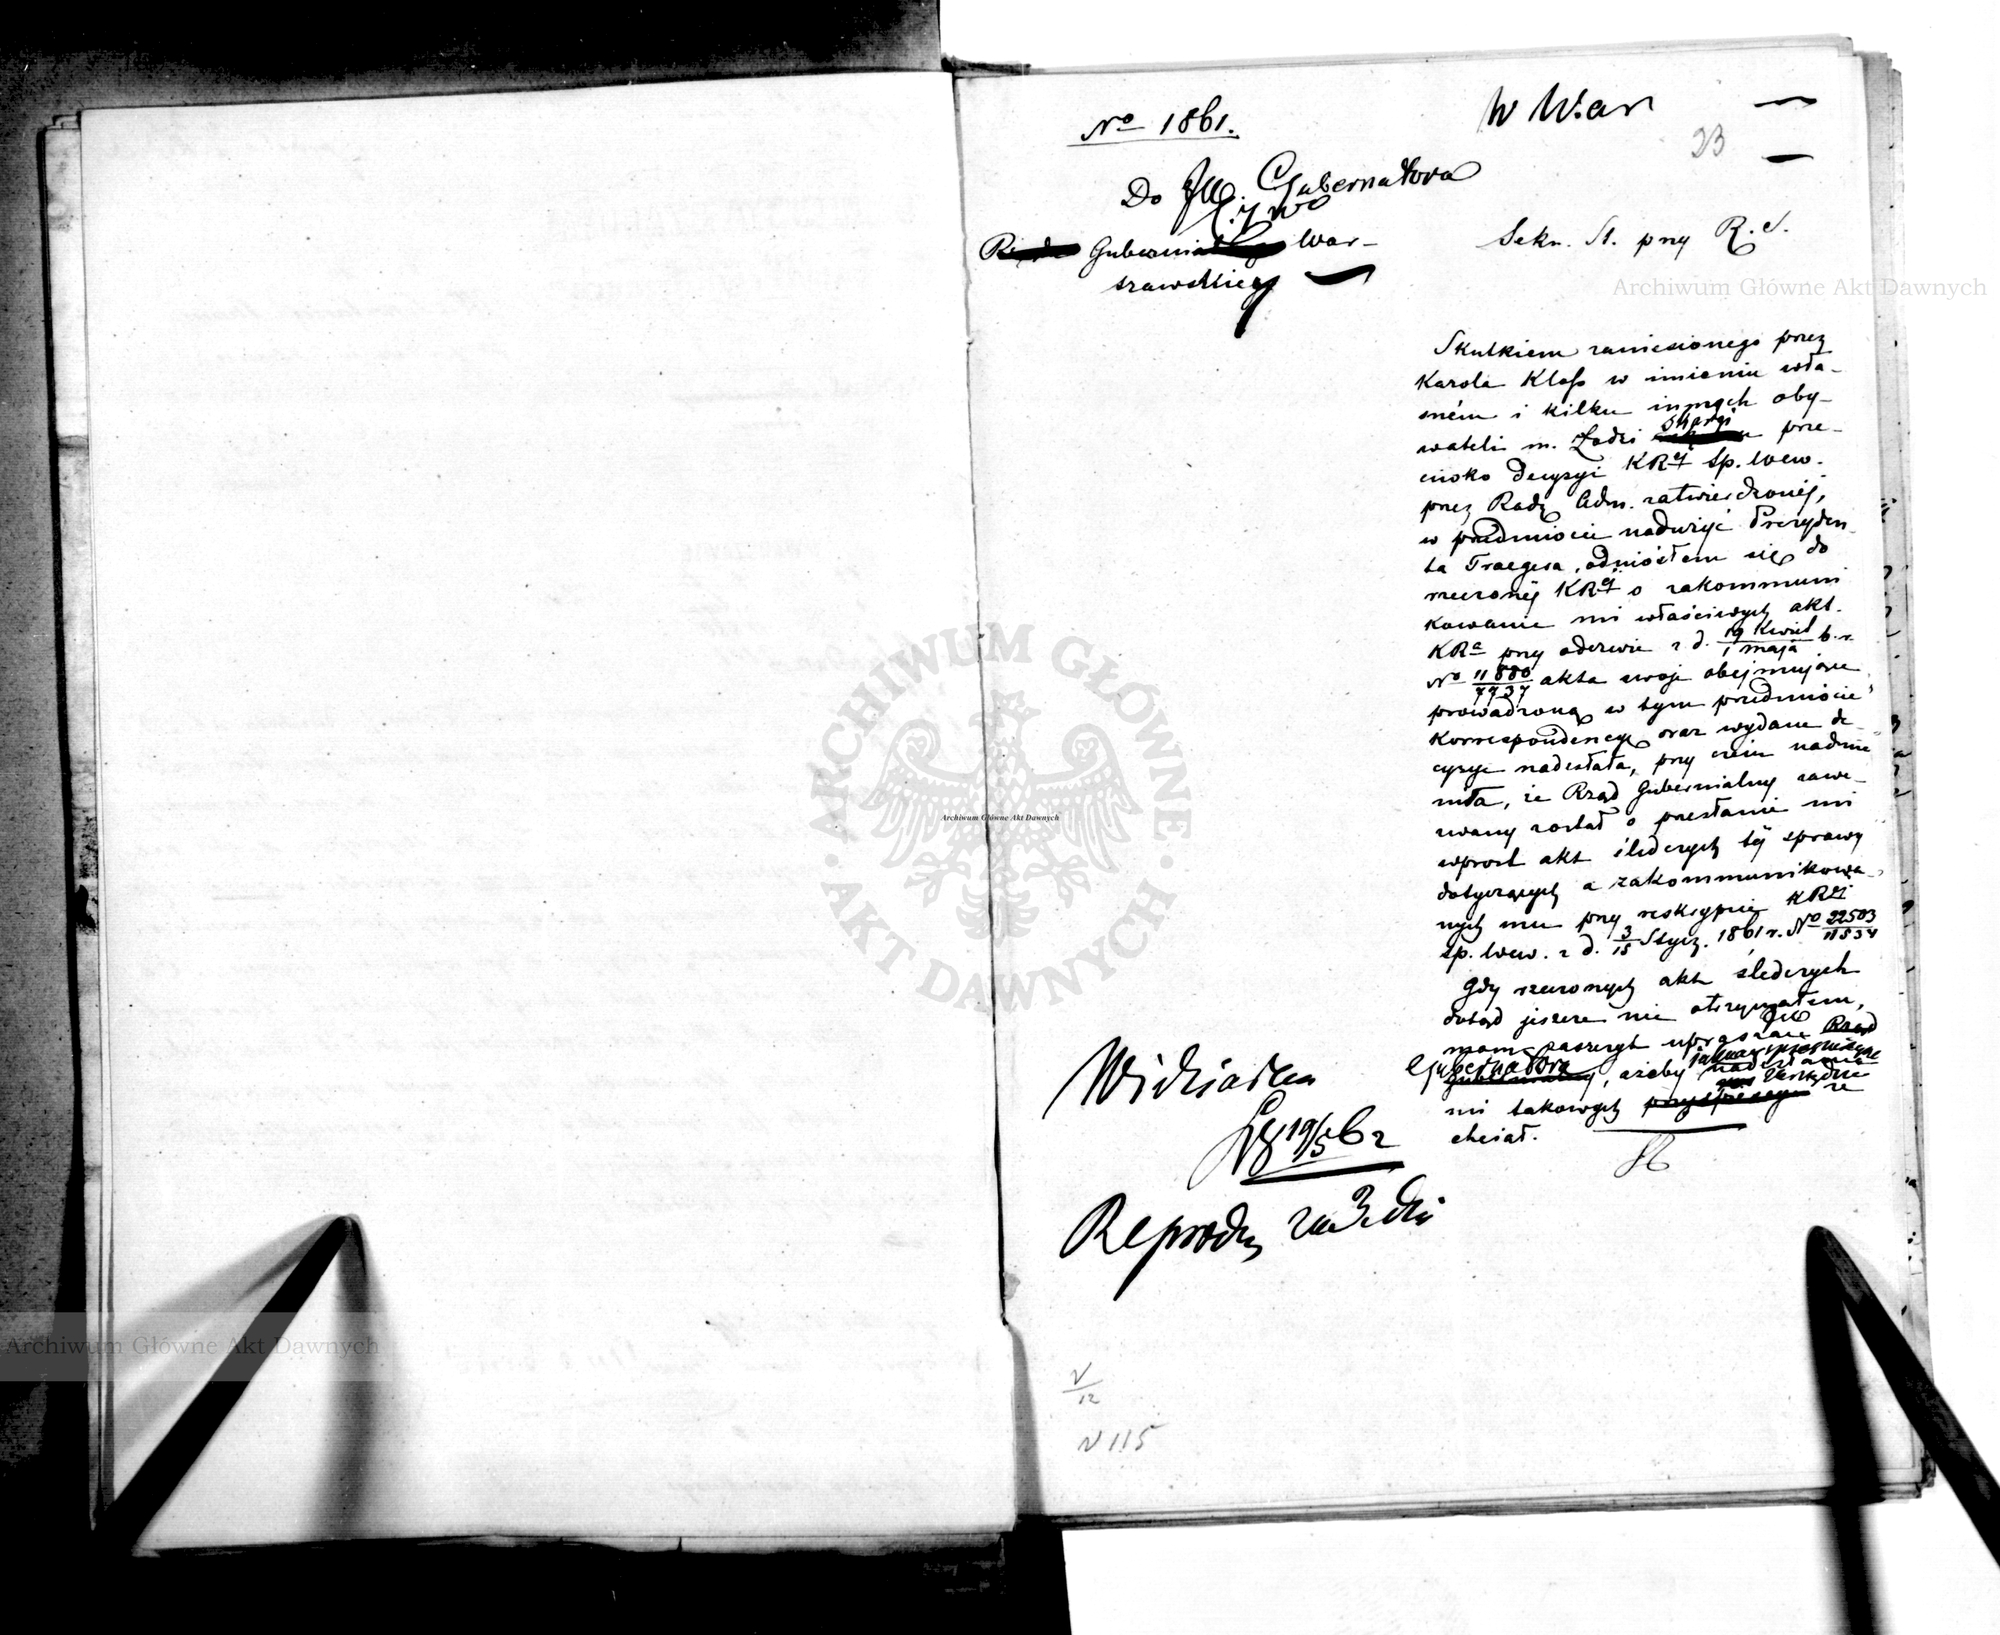 No 1861.
W War
23
Do JW. Gubernatora
Cywo
Rządu Gubernialnego War-
szawskiego
Sekr. St. przy R. S.
Archiwum Główne Akt Dawnych
Skutkiem zaniesionego przez
Karola Klass w imieniu wła-
sném i kilku innych oby-
skargi
wateli m. Łodzi prze-
ciwko decyzyi KRej Sp. Wew.
przez Radę Adm. zatwierdzonéj,
w przedmiocie nadużyć Prezyden-
ta Traegera, odniosłem się do
rzeczonéj KRej o zakommuni
kowanie mi właściwych akt.
KRa przy odezwie z d. 19 Kwiet / 1 Maja b. r.
No 11880/7737 akta swoje obejmujące
prowadzoną w tym przedmiocie
korrespondencyę oraz wydane de-
cyzye nadesłała, przy czem nadmie
niła, że Rząd Gubernialny zawe-
zwany został o przesłanie mi
wprost akt śledczych téj sprawy
dotyczących a zakommunikowa-
nych mu przy reskrypcie KRéj
Sp. Wew. z d. 3/15 Stycz. 1861 r. No 22503/11534
Gdy rzeczonych akt śledczych
dotąd jeszcze nie otrzymałem,
mam zaszczyt upraszać JW Rząd
Gubernatora jaknajspieszniejsze
Gubernialny, ażeby nadesłanie
zarządzić
mi takowych przyspieszyć ze
chciał.
Wiedziałem
19/5 62
Reprodu za 3 dni
V/12
N 115
Archiwum Główne Akt Dawnych
ARCHIWUM GŁÓWNE
AKT DAWNYCH
Archiwum Główne Akt Dawnych